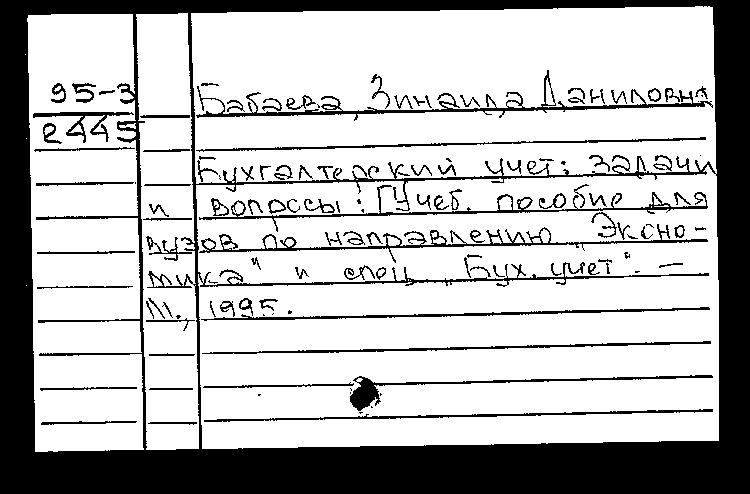 95-3
2445
Бабаева, Зинаида Даниловна
Бухгалтерский учет: задачи
и вопросы: [Учеб. пособие для
вузов по направлению „Эконо-
мика" и спец. „Бух. учет". —
М., 1995.